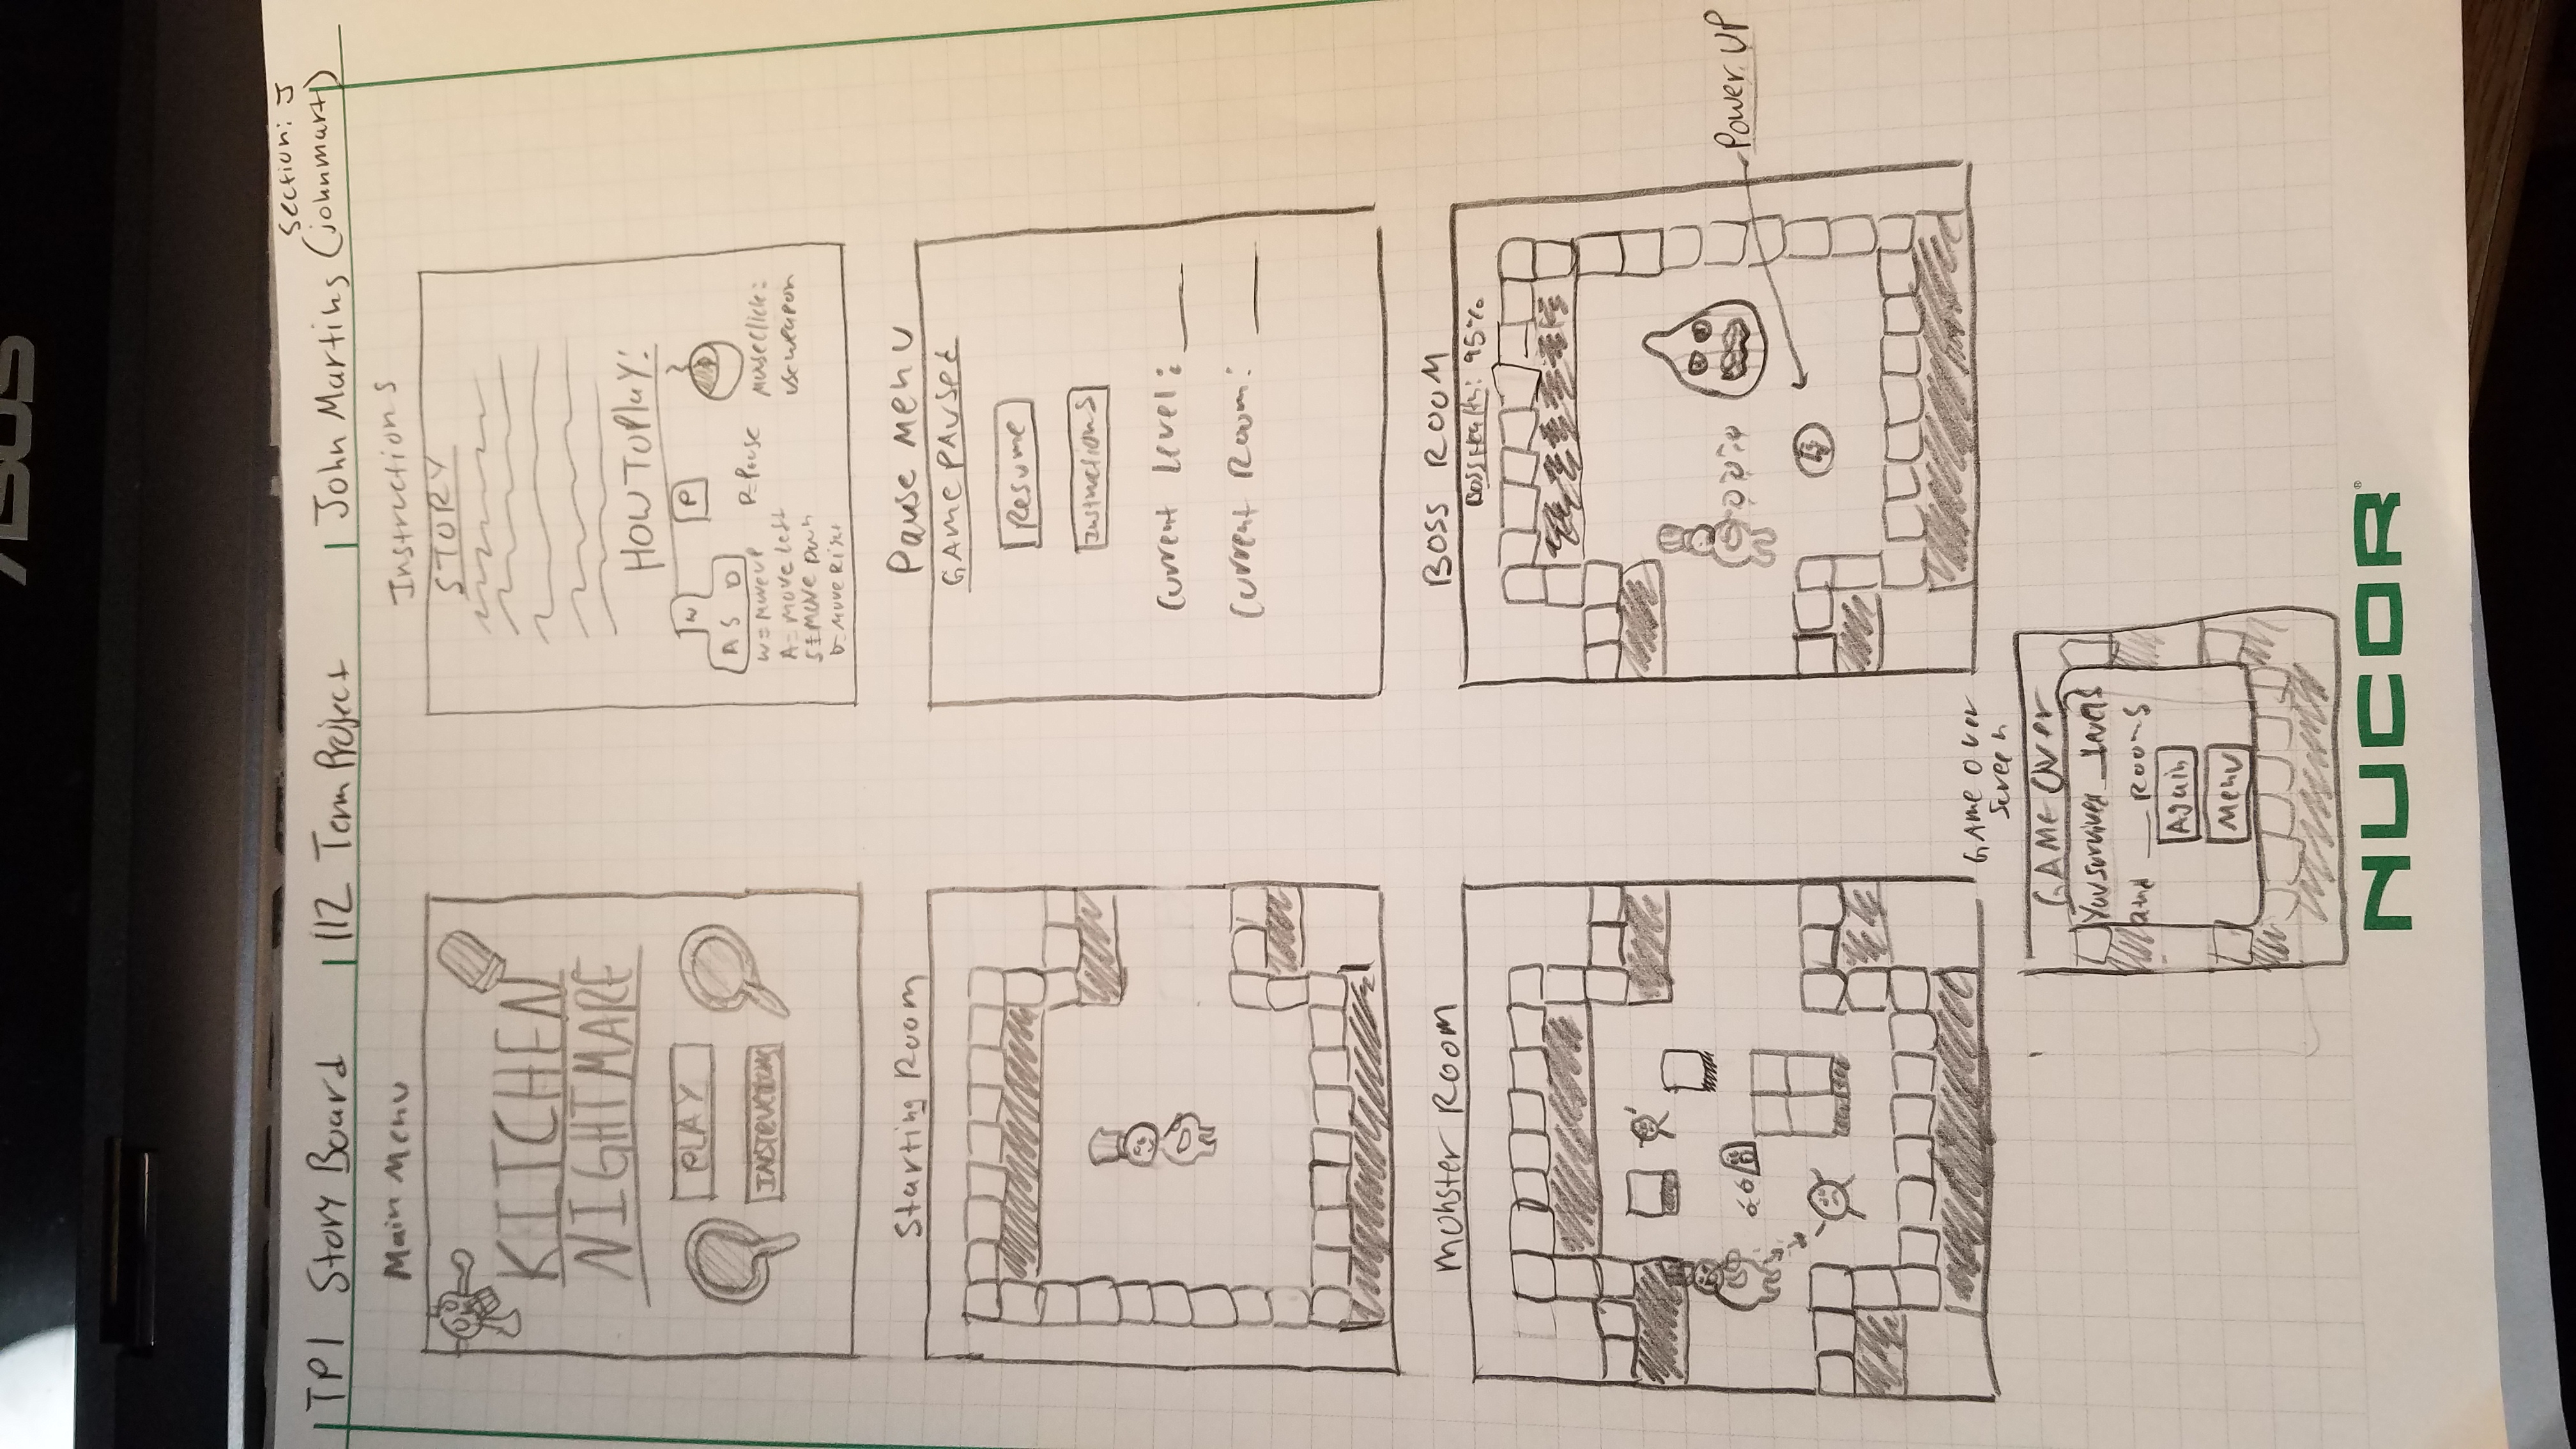 ASUS
TP1 Story Board
112 Term Project
Section: J
John Martins (johnmart)
Main Menu
KITCHEN
NIGHTMARE
PLAY
INSTRUCTIONS
Instructions
STORY
HOW TO Play:
W
A S D
P
W = Move up
A = Move Left
S = Move Down
D = Move Right
P = Pause
Mouse Click:
use weapon
Starting Room
Pause Menu
GAME PAUSED
Resume
Instructions
Current Level: ___
Current Room: ___
Monster Room
BOSS ROOM
Boss Health: 95%
Power UP
Game Over
Screen
GAME OVER
You survived __ levels
and __ Rooms
Again
Menu
NUCOR®